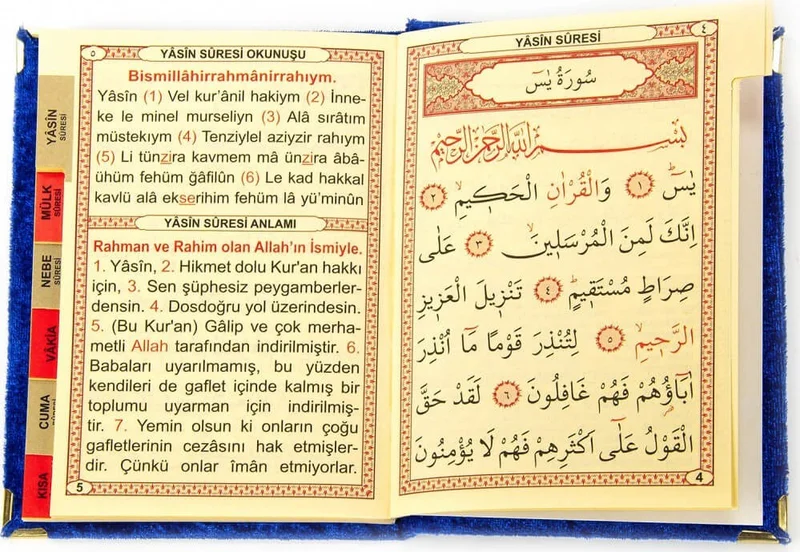 YÂSÎN SÛRESİ
٤
سُورَةُ يٰسٓ
بِسْمِ اللّٰهِ الرَّحْمٰنِ الرَّحٖيمِ
يٰسٓ ﴿١﴾ وَالْقُرْاٰنِ الْحَكٖيمِ ﴿٢﴾
اِنَّكَ لَمِنَ الْمُرْسَلٖينَ ﴿٣﴾ عَلٰى
صِرَاطٍ مُسْتَقٖيمٍ ﴿٤﴾ تَنْزٖيلَ الْعَزٖيزِ
الرَّحٖيمِ ﴿٥﴾ لِتُنْذِرَ قَوْمًا مَٓا اُنْذِرَ
اٰبَٓاؤُ۬هُمْ فَهُمْ غَافِلُونَ ﴿٦﴾ لَقَدْ حَقَّ
الْقَوْلُ عَلٰٓى اَكْثَرِهِمْ فَهُمْ لَا يُؤْمِنُونَ
4
٥
YÂSÎN SÛRESİ OKUNUŞU
Bismillâhirrahmânirrahıym.
Yâsîn (1) Vel kur'ânil hakiym (2) İnne-
ke le minel murseliyn (3) Alâ sıratım
müstekıym (4) Tenziylel aziyzir rahıym
(5) Li tünzira kavmem mâ ünzira âbâ-
ühüm fehüm ğafilûn (6) Le kad hakkal
kavlü alâ ekserihim fehüm lâ yü'minûn
YÂSÎN SÛRESİ ANLAMI
Rahman ve Rahim olan Allah'ın İsmiyle.
1. Yâsîn, 2. Hikmet dolu Kur'an hakkı
için, 3. Sen şüphesiz peygamberler-
densin. 4. Dosdoğru yol üzerindesin.
5. (Bu Kur'an) Gâlip ve çok merha-
metli Allah tarafından indirilmiştir. 6.
Babaları uyarılmamış, bu yüzden
kendileri de gaflet içinde kalmış bir
toplumu uyarman için indirilmiş-
tir. 7. Yemin olsun ki onların çoğu
gafletlerinin cezâsını hak etmişler-
dir. Çünkü onlar îmân etmiyorlar.
5
YÂSİN
SÛRESİ
MÜLK
SÛRESİ
NEBE
SÛRESİ
VÂKİA
CUMA
KISA